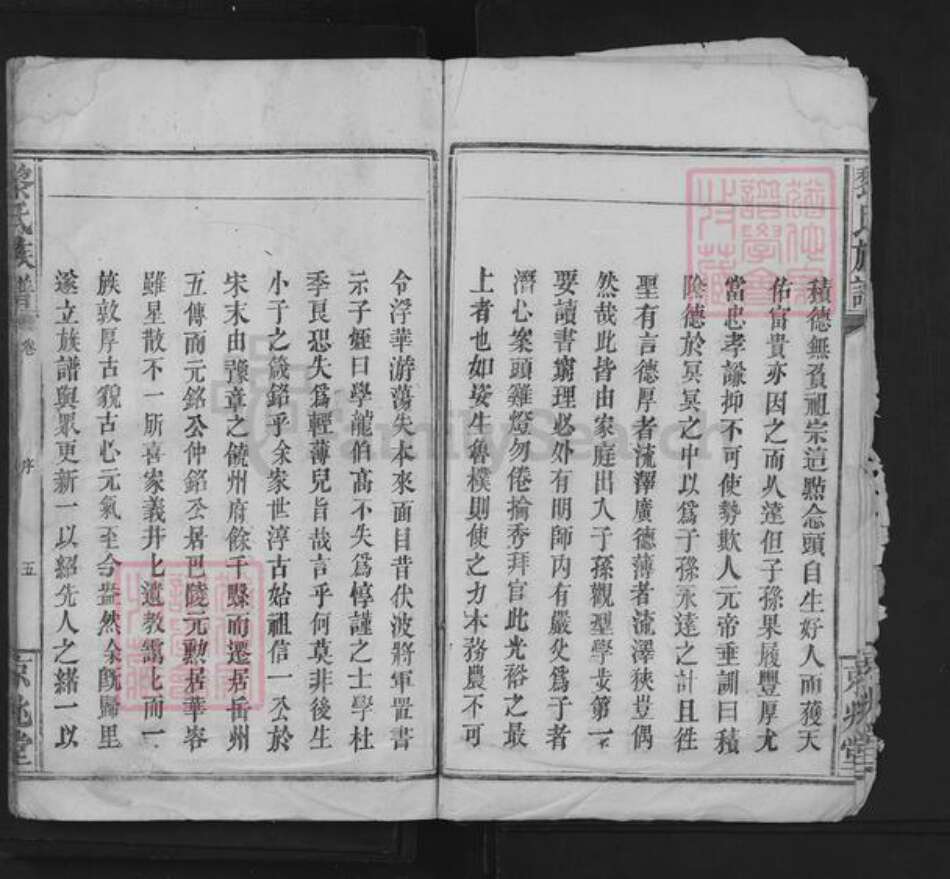 積德無負祖宗這點念頭自生好人而獲天
佑富貴亦因之而久遠但子孫果履豐厚尤
當忠孝謙抑不可使勢欺人元帝垂訓曰積
陰德於冥冥之中以為子孫永遠之計且往
聖有言德厚者流澤廣德薄者流澤狹豈偶
然哉此皆由家庭出入子孫觀型學步第一
要讀書窮理必外有明師內有嚴父為子者
潛心案頭雞燈勿倦掄秀拜官此光裕之最
上者也如姿生魯樸則使之力本務農不可
令浮華游蕩失本來面目昔伏波將軍置書
示子姪曰學龍伯髙不失為惇謹之士學杜
季良恐失為輕薄兒旨哉言乎何莫非後生
小子之箴銘乎余家世淳古始祖信一公於
宋末由豫章之饒州府餘干縣而遷居岳州
五傳而元銘公仲銘公居巴陵元勲居華容
雖星散不一所喜家義井比遺教藹比而一
族敦厚古貌古心元氣至今盎然余既歸里
遂立族譜與眾更新一以紹先人之緒一以
黎氏族譜
卷
序
五
京兆堂
氏族譜
京兆堂
FamilySearch